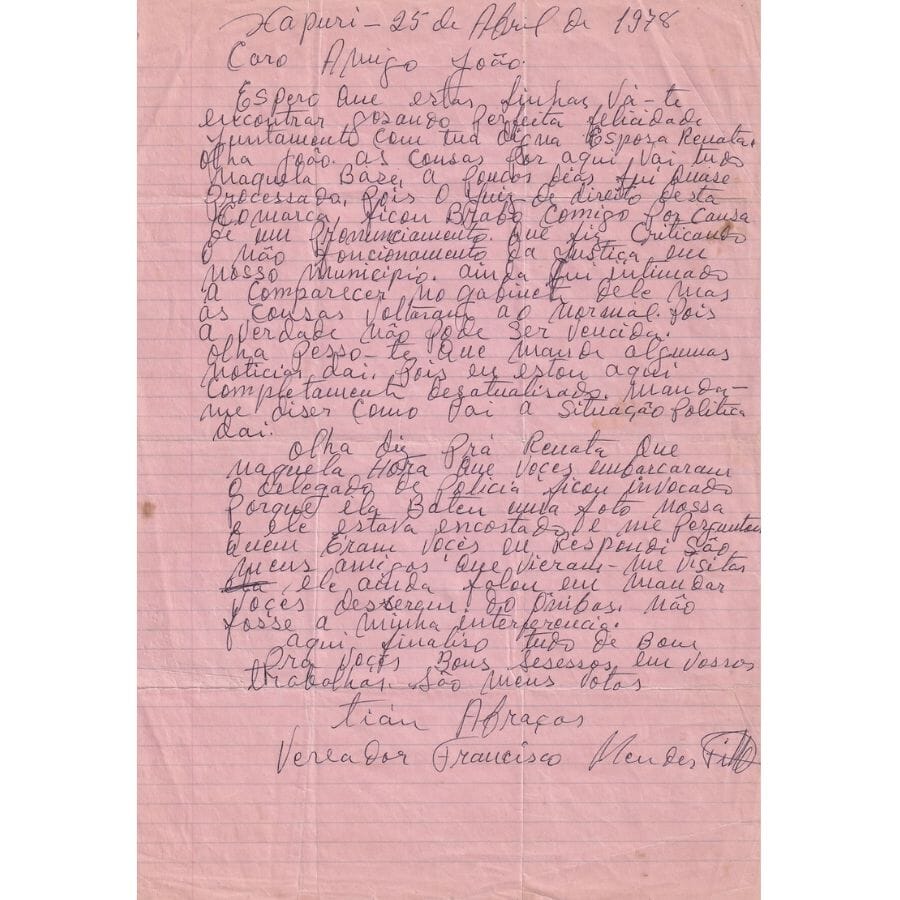 Xapuri - 25 de Abril de 1978
Caro Amigo João.
Espero Que estas linhas vá-te
encontrar gosando perfeita felicidade
juntamento com tua digna Esposa Renata.
Olha João. as cousas por aqui vai tudo
naquela Base, a poucos dias fui quase
processado, pois o juiz de direito desta
Comarca, ficou Brabo comigo por causa
de um pronunciamento. que fiz criticando
o não foncionamento da justiça em
nosso município. ainda fui intimado
a comparecer no gabinet dele mas
as cousas voltaram ao normal. pois
a verdade não pode ser vencida.
Olha pesso-te que mande algumas
noticias dai. pois eu estou aqui
completamente desatualisado. manda-
me diser como vai a situação politica
dai.
Olha diz prá Renata que
naquela Hora que voçes embarcaram
o delegado de policia ficou invocado
porque ela Bateu uma foto nossa
e ele estava encostado, e me perguntou
quem eram voçes eu respondi são
meus amigos que vieram-me visitar
ele ainda falou em mandar
voçes desserem do ônibus. não
fosse a minha interferencia.
aqui finaliso tudo de Bom
pra voçes Bons susessos em vossos
trabalhos. são meus votos
Abraços
Vereador Francisco Mendes Filho